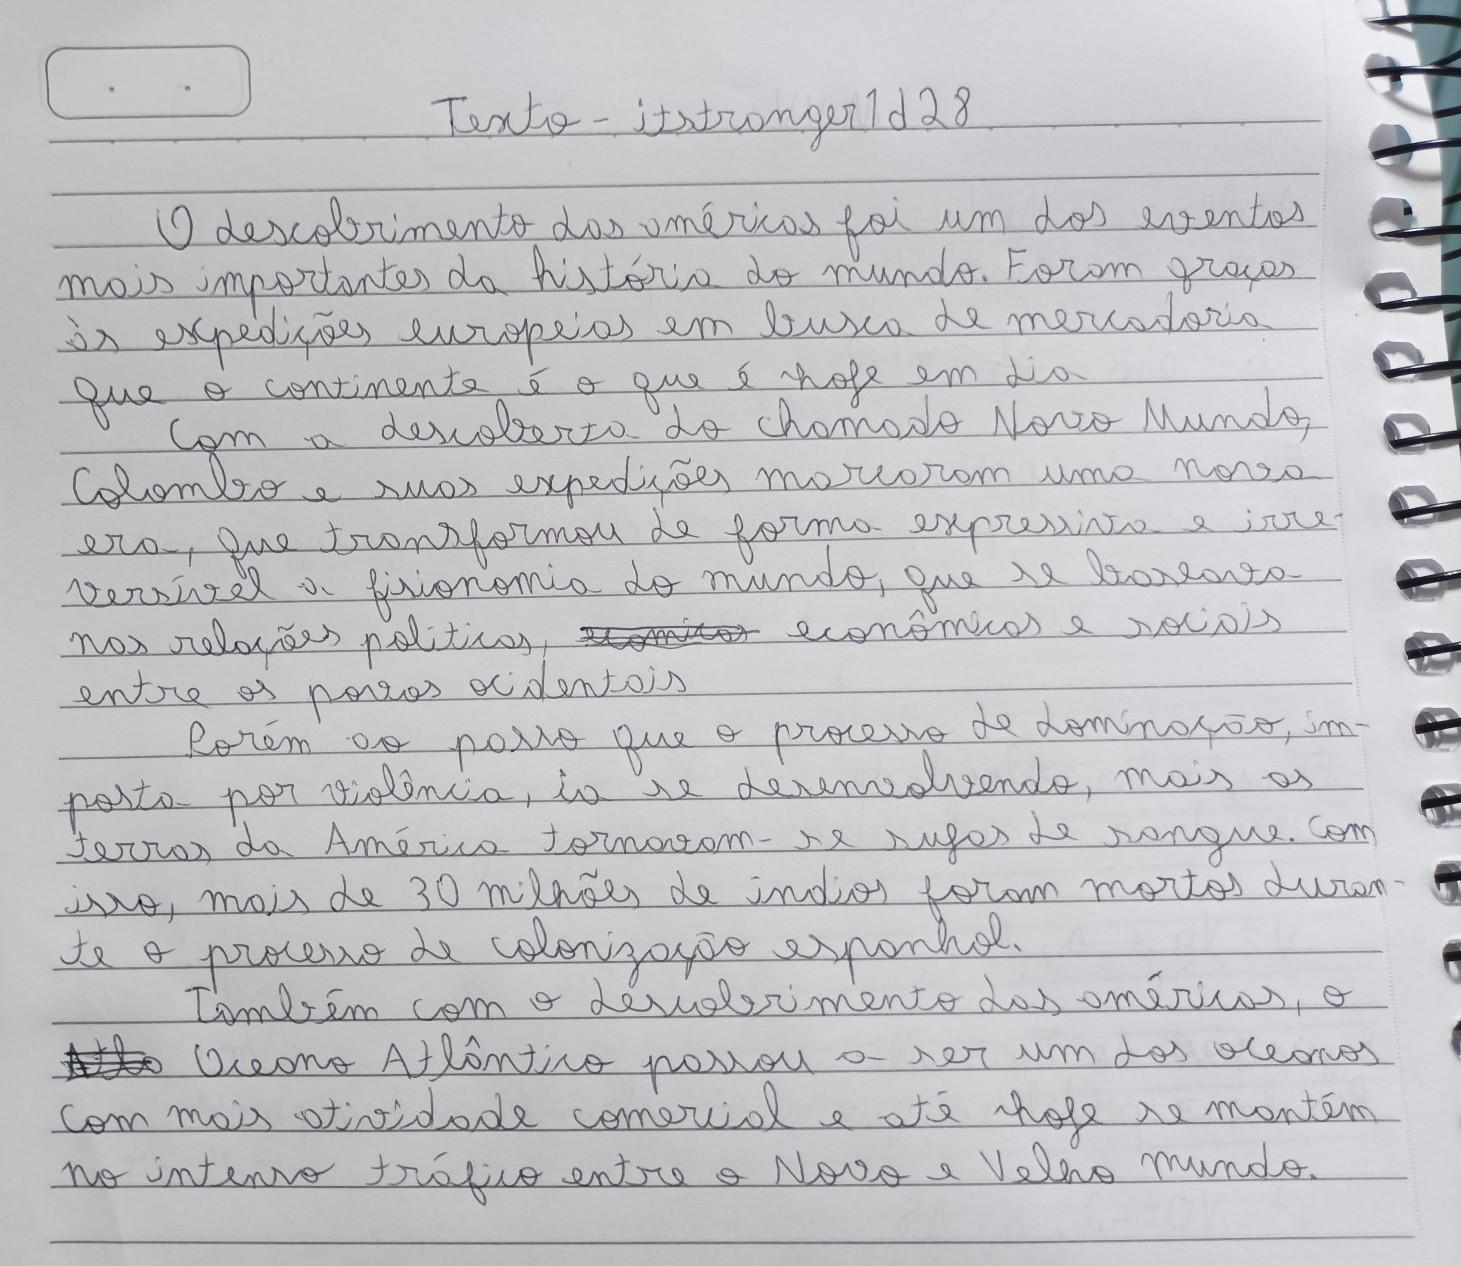 Texto - itstronger1d28
O descobrimento das américas foi um dos eventos
mais importantes da história do mundo. Foram graças
às expedições europeias em busca de mercadoria
que o continente é o que é hoje em dia
Com a descoberta do chamado Novo Mundo,
Colombo e suas expedições marcaram uma nova
era, que transformou de forma expressiva e irre-
versível a fisionomia do mundo, que se baseava
nas relações políticas, econômicas e sociais
entre os povos ocidentais
Porém ao passo que o processo de dominação, im-
posta por violência, ia se desenvolvendo, mais as
terras da América tornavam-se sujas de sangue. Com
isso, mais de 30 milhões de índios foram mortos duran-
te o processo de colonização espanhol.
Também com o descobrimento das américas, o
Oceano Atlântico passou a ser um dos oceanos
com mais atividade comercial e até hoje se mantém
no intenso tráfico entre o Novo e Velho mundo.